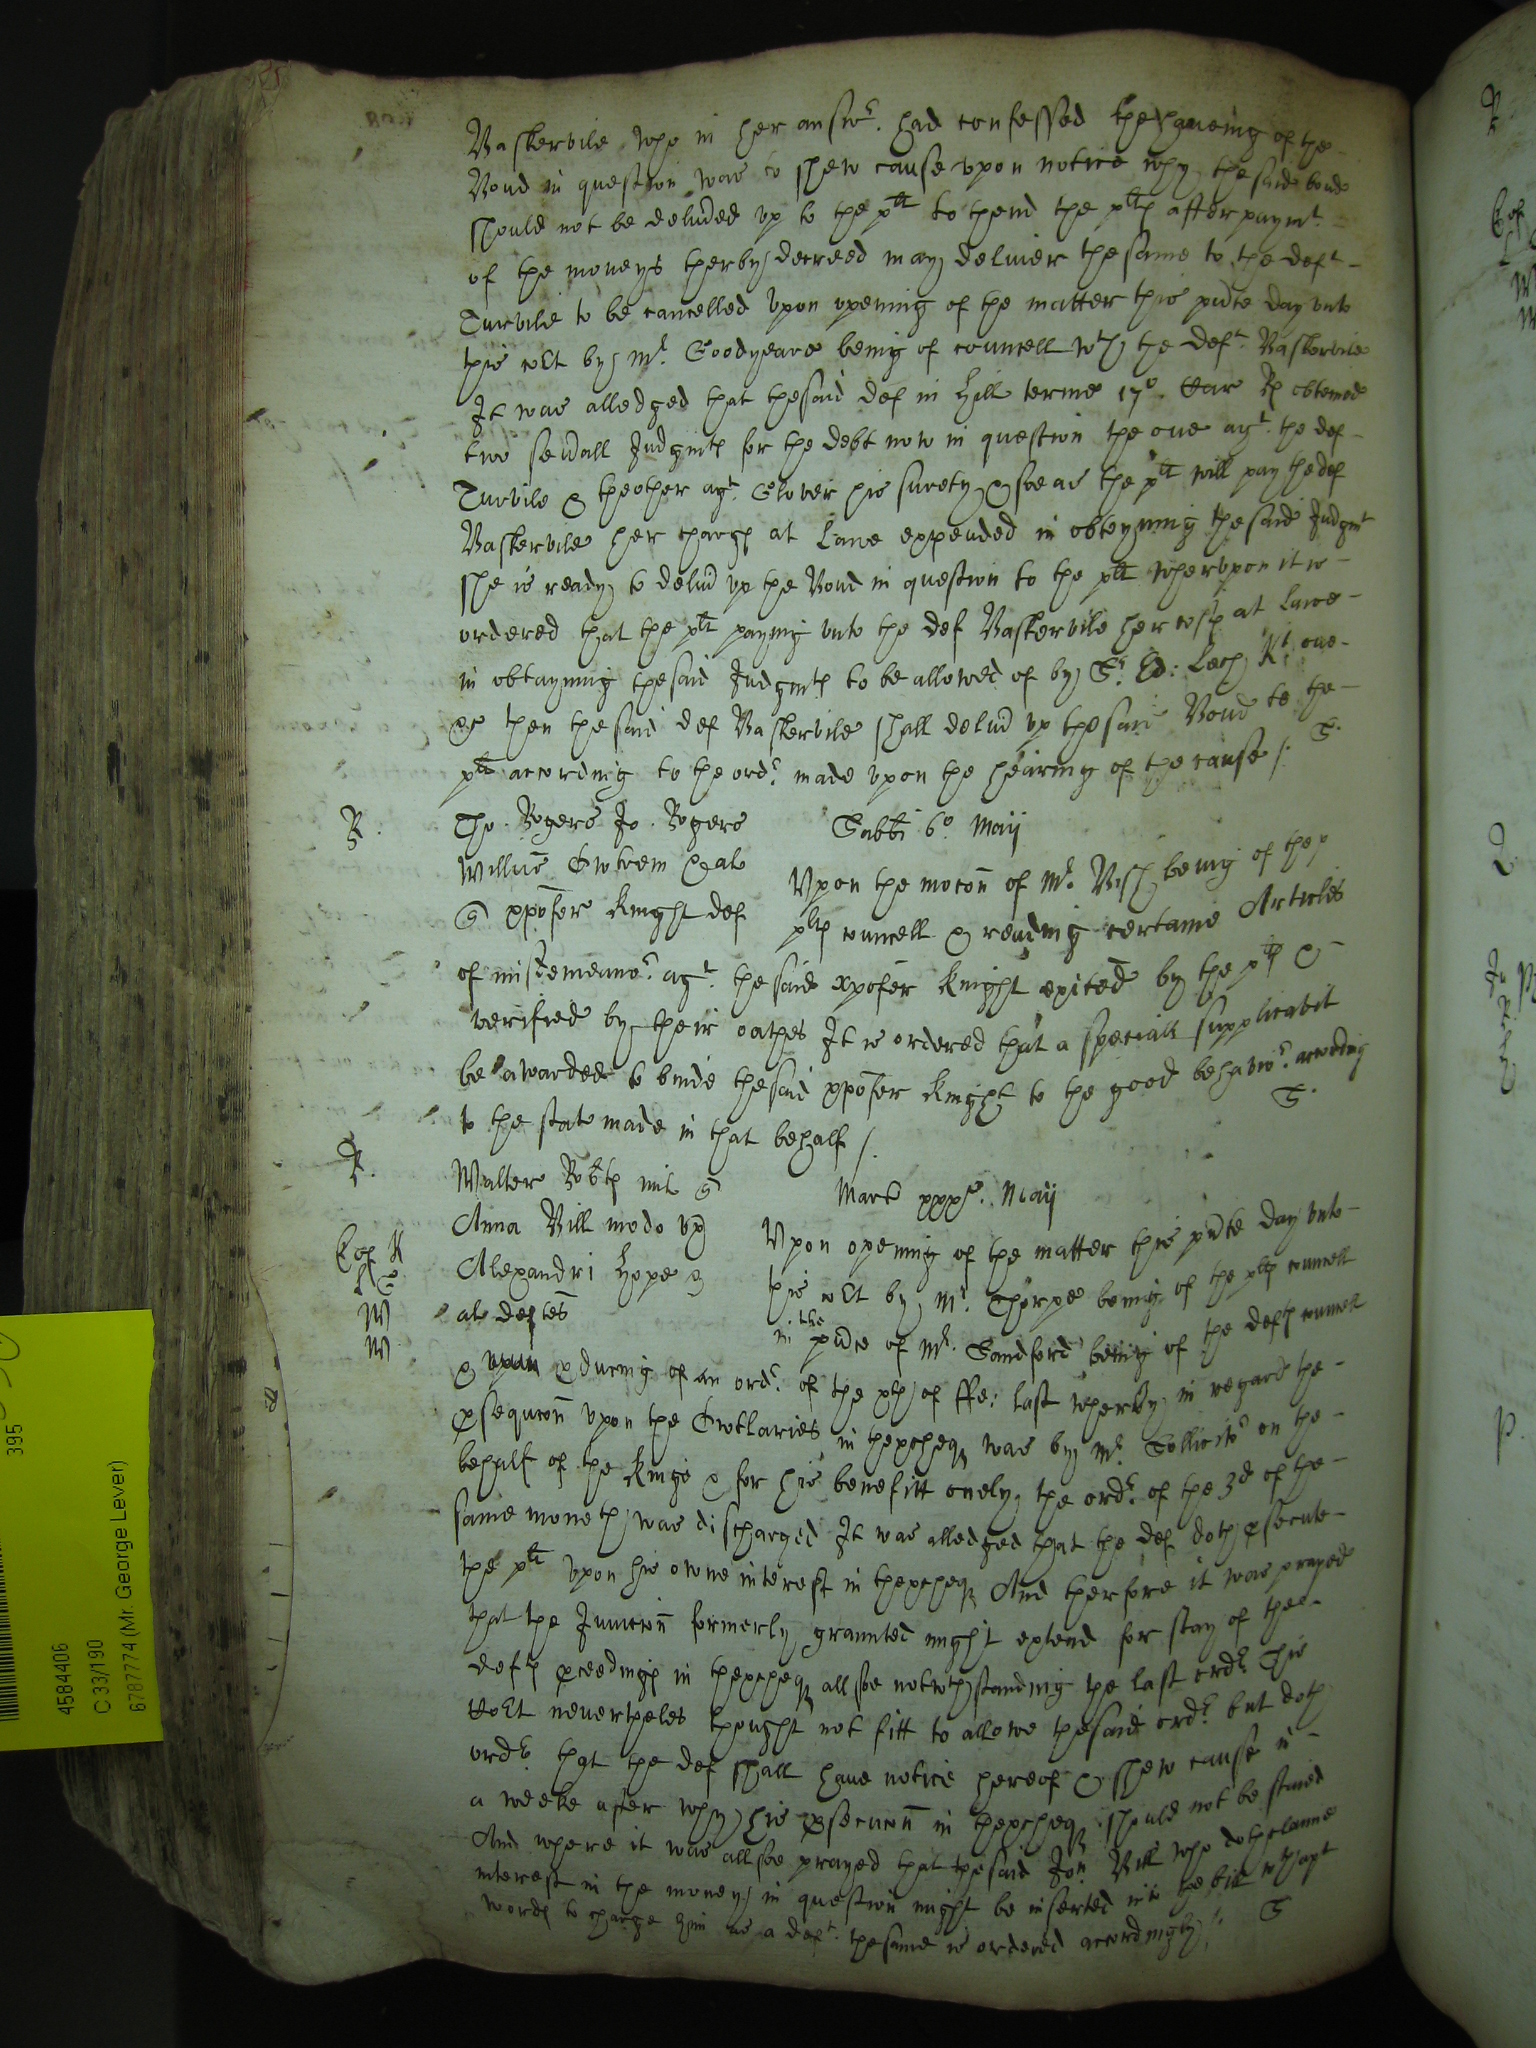 Baskervile who in her answr. had confessed the haveing of the
Bond in question was to shew cause upon notice why the said bond
should not be delivered up to the plt to thend the plt after paymt.
of the moneys therby decreed may deliver the same to the deft
Turvile to be cancelled Upon opening of the matter this pñte day unto
this cort by Mr. Goodyeare being of councell wth the deft Baskervile
It was alledged that the said def in Hill terme 17o. Car Rs obteined
two severall Judgmts for the debt now in question the one agt. the def
Turvile & the other agt. Glover his surety, & soe as the plt will pay the def
Baskervile her chargs at Lawe expended in obteyning the said Judgmt
she is ready to deliver up the Bond in question to the plt wherupon it is
ordered that the plt paying unto the def Baskervile her costs at Lawe
in obtayning the said Judgmts to be allowed of by Sr. Ed: Lech Kt one
&c then the said def Baskervile shall deliver up the said Bond to the
plt according to the ordr. made upon the hearing of the cause /.
R.
Tho. Rogers Jo. Rogers
Willm al
xpofer Knight def
Sabbti 6o. Maij
Upon the mocõn of Mr. being of the
plts councell & reading certaine Articles
of misdemeanor. agt. the said xpofer Knight exited by the plts &
verified by their oathes It is ordered that a speciall supplicavit
be awarded to binde the said xpofer Knight to the good behavior. according
to the state made in that behalf /.
R.
Walter Robts mil
Anna Bill modo ux
Alexandri Hope &
al deftes
Martis xxxo. Maij
Upon opening of the matter this pñte day unto
this cort by Mr. Thorpe being of the plts councell
in the pñce of Mr. Sandford being of the defts councell
& upon pducing of an ordr. of the of ffe: last wherby in regard the
psequcõn upon the Outlaries in thexcheqr was by Mr. Sollicitr on the
behalf of the Kinge & for his benefitt onely, the ordr. of the 3d of the
same moneth was discharged It was alledged that the def doth psecute
the plt upon his owne interest in thexcheqr And therfore it was prayed
that the Junccõn formerly graunted might extend for stay of the
defts pceedings in thexcheqr allsoe notwthstanding the last ordr. This
Cort nevertheles thought not fitt to allowe the said ordr. but doth
ordr. that the def shall have notice hereof & shew cause in
a weeke after why his psecucõn in thexcheqr should not be staied
And where it was allsoe prayed that the said Jon Bill who doth claime
interest in the money in question might be inserted into the bill wth apt
words to charge him as a deft. the same is ordered accordingly /.
395
4584406
C 33/190
6787774 (Mr. George Lever)